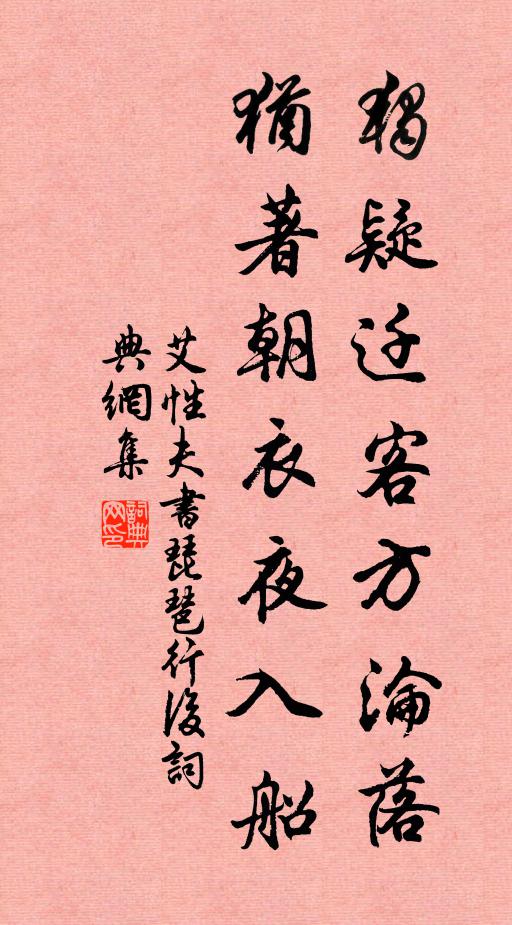 獨疑迁客方淪落
猶著朝衣夜入船
艾性夫書琵琶行後詞
典網集
詞典
网印